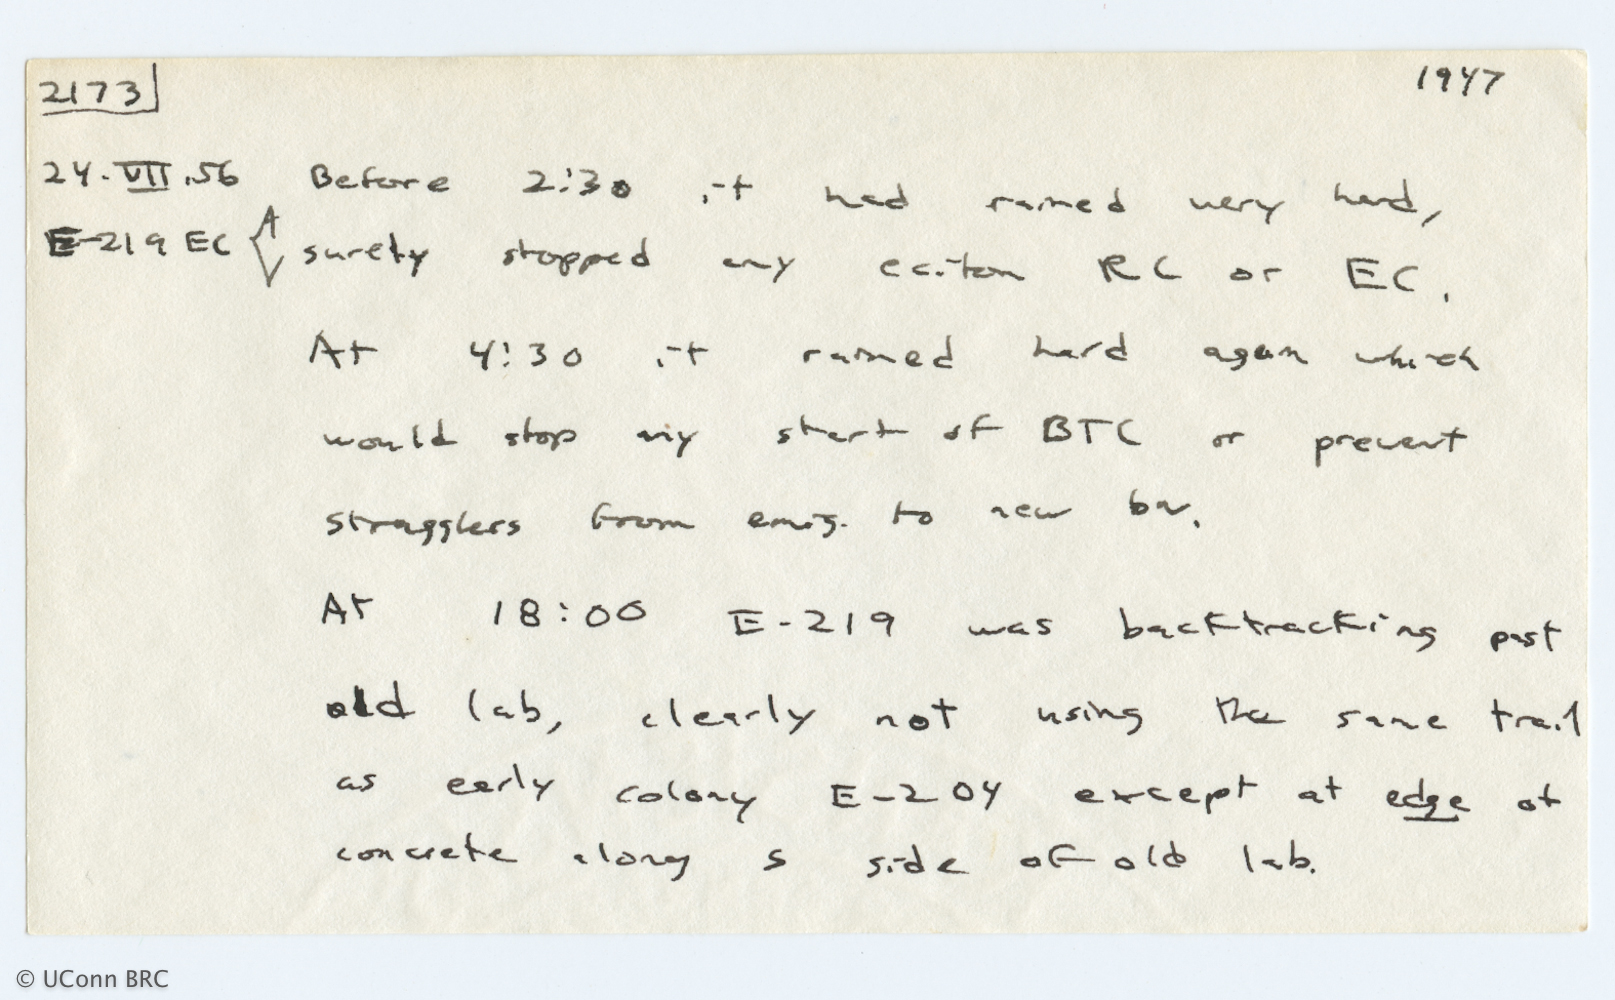 2173 1947
24.VII.56 Before 2:30 it had rained very hard,
E-219 EC surely stopped any eciton RC or EC.
At 4:30 it rained hard again which
would stop any start of BTC or prevent
stragglers from emig. to new biv.
At 18:00 E-219 was backtracking past
old lab, clearly not using the same trail
as early colony E-204 except at edge of
concrete along S side of old lab.
© UConn BRC